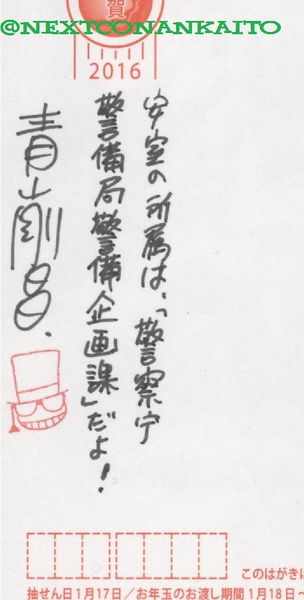 @NEXTCONANKAITO
賀
2016
安室の所属は、「警察庁
警備局警備企画課」だよ！
青山剛昌.
このはがきは
抽せん日1月17日／お年玉のお渡し期間1月18日～